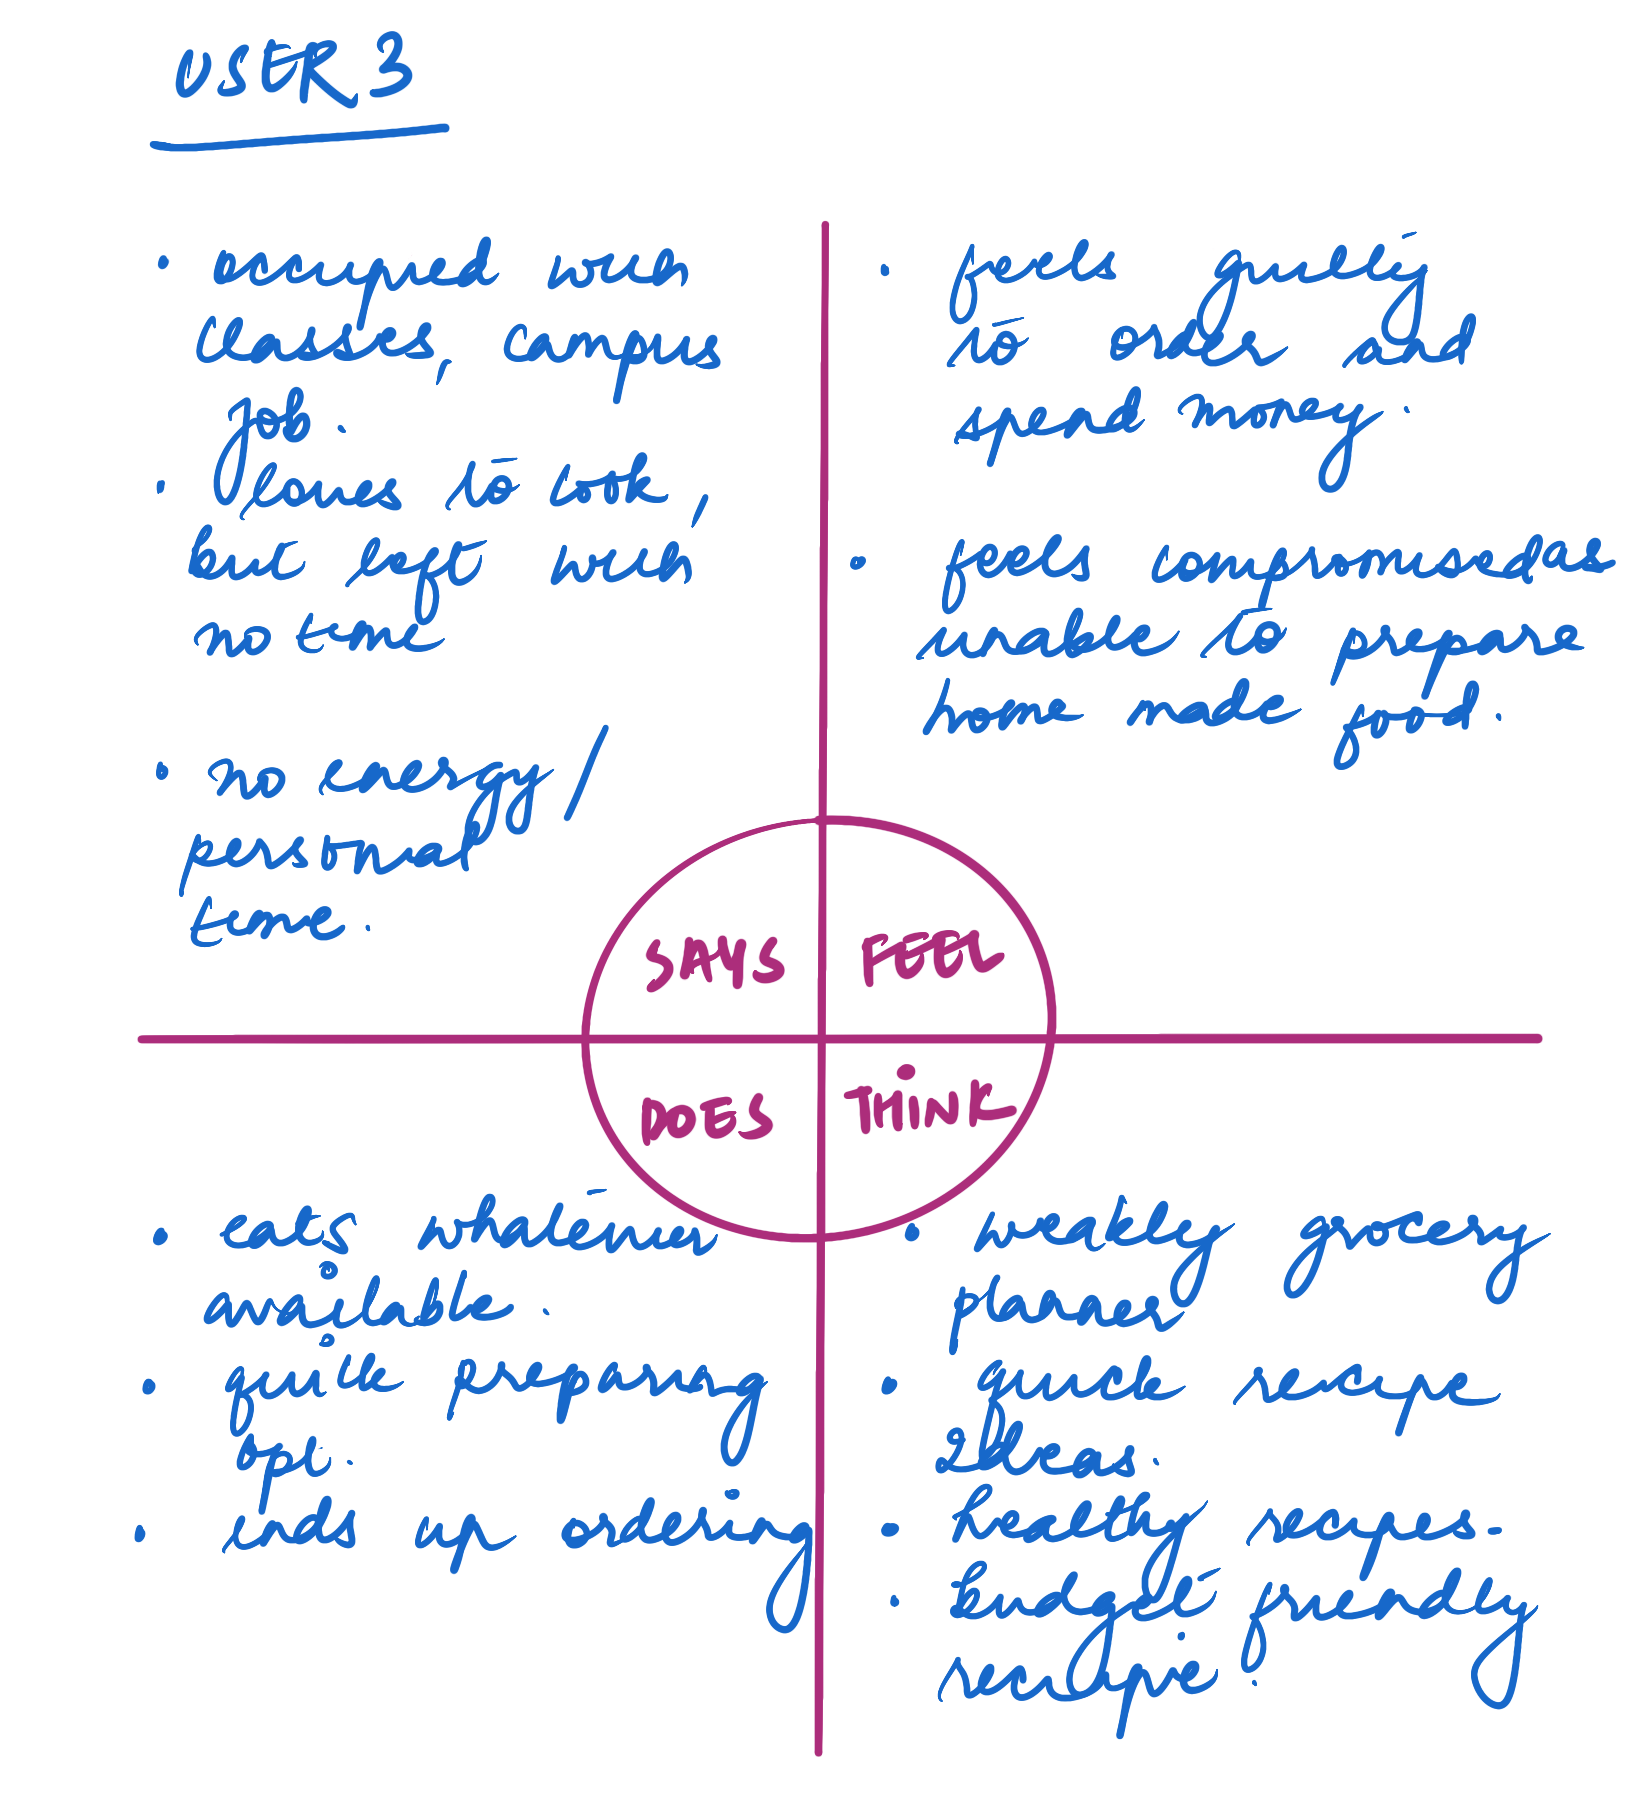 USER 3
• occupied with
classes, campus
job.
• loves to cook,
but left with
no time
• no energy/
personal
time.
• feels guilty
to order and
spend money.
• feels compromised as
unable to prepare
home made food.
SAYS
FEEL
DOES
THINK
• eats whatever
available.
• quick preparing
opt.
• ends up ordering
• weakly grocery
planner
• quick recipe
Ideas.
• healthy recipes.
• budget friendly
recipie.